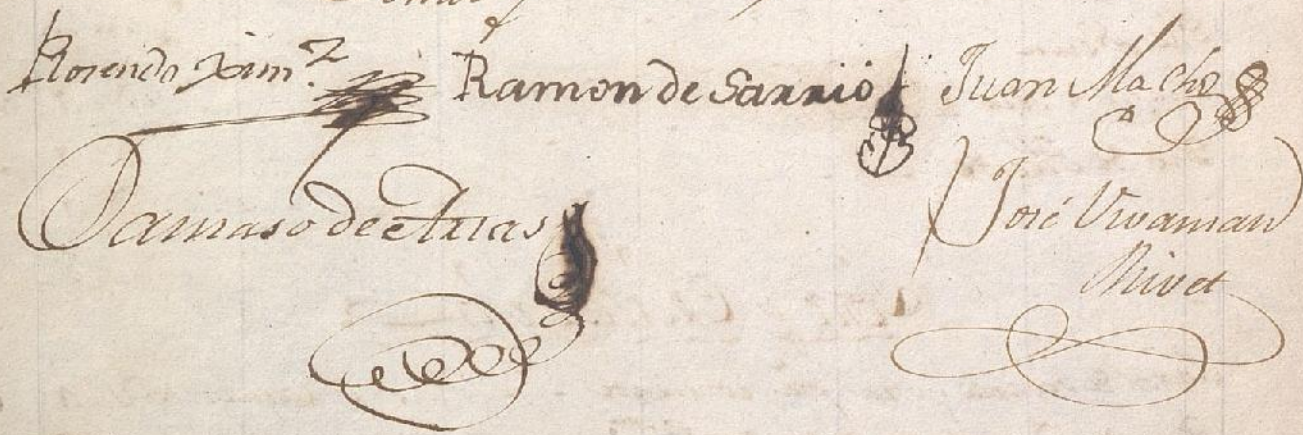 Rosendo Xim.z Ramon de Sarrió Juan Macho
Damaso de Arias José Vivaman
Rivet